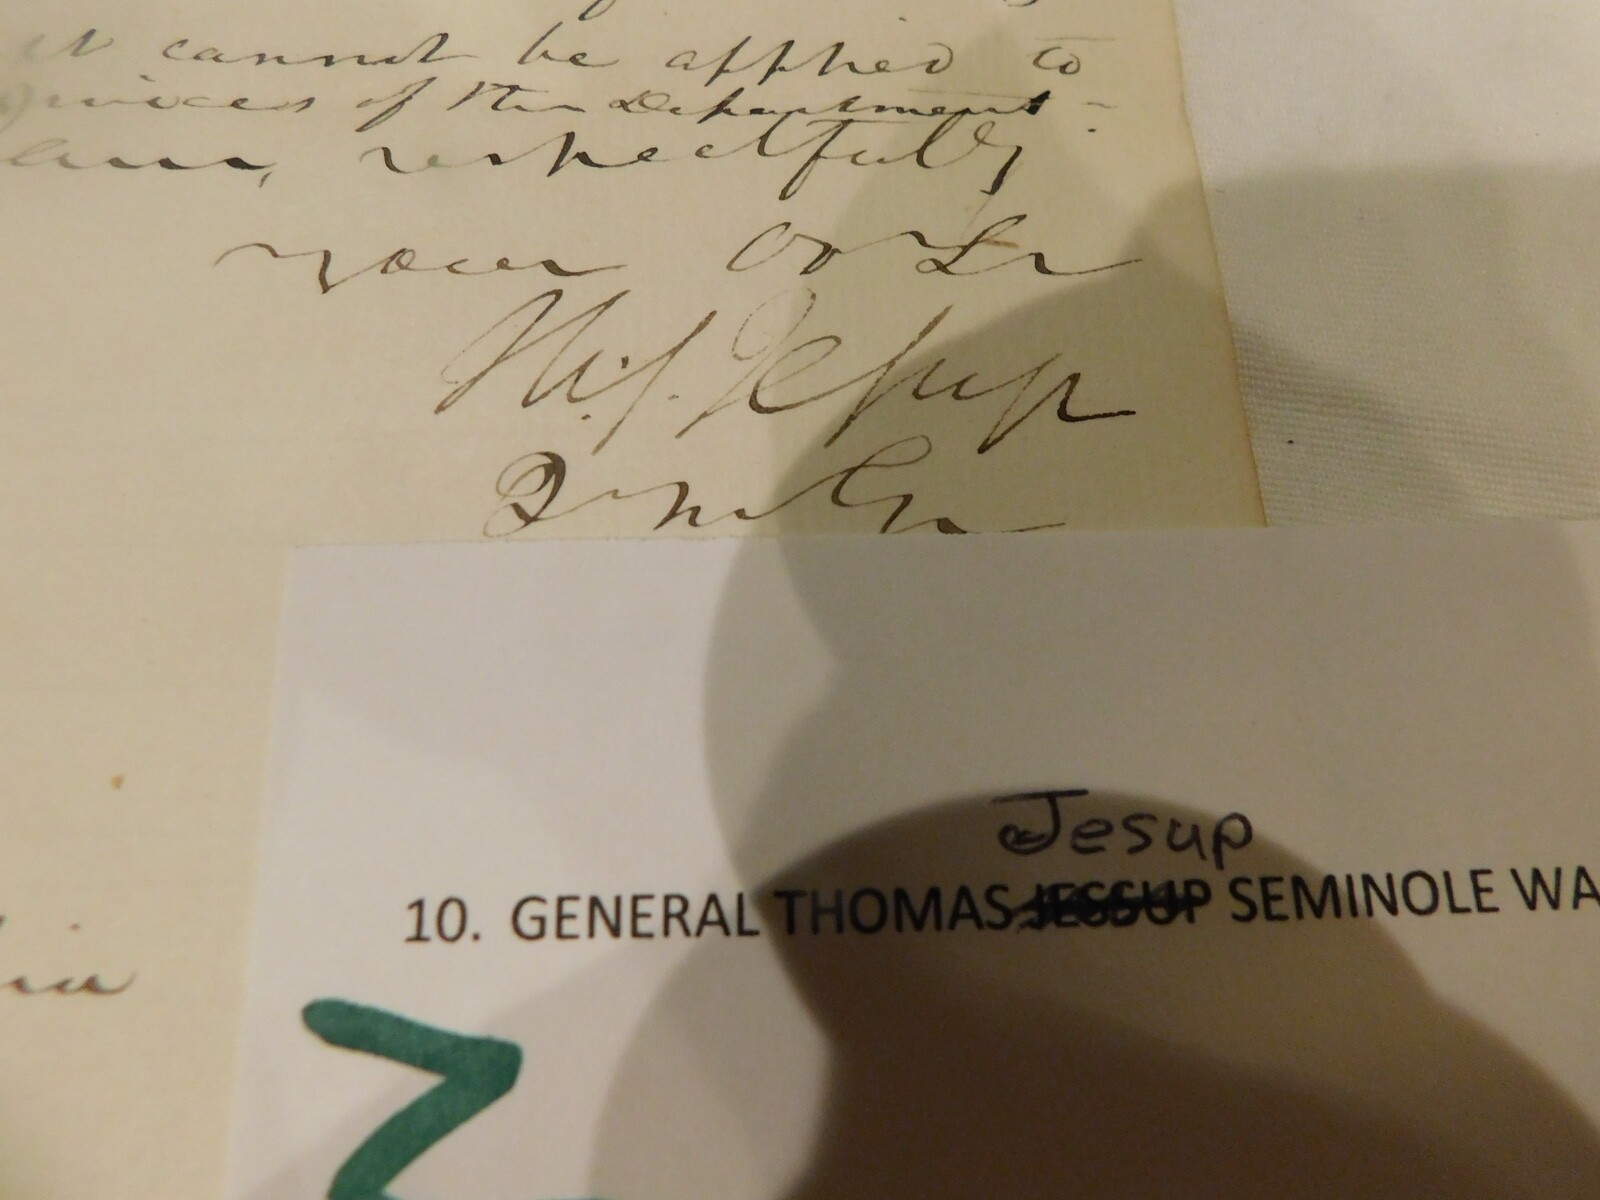 it cannot be applied to
of the Department -
am, respectfully
your ob Sr
Th. S. Jesup
Jesup
10. GENERAL THOMAS JESSUP SEMINOLE WA